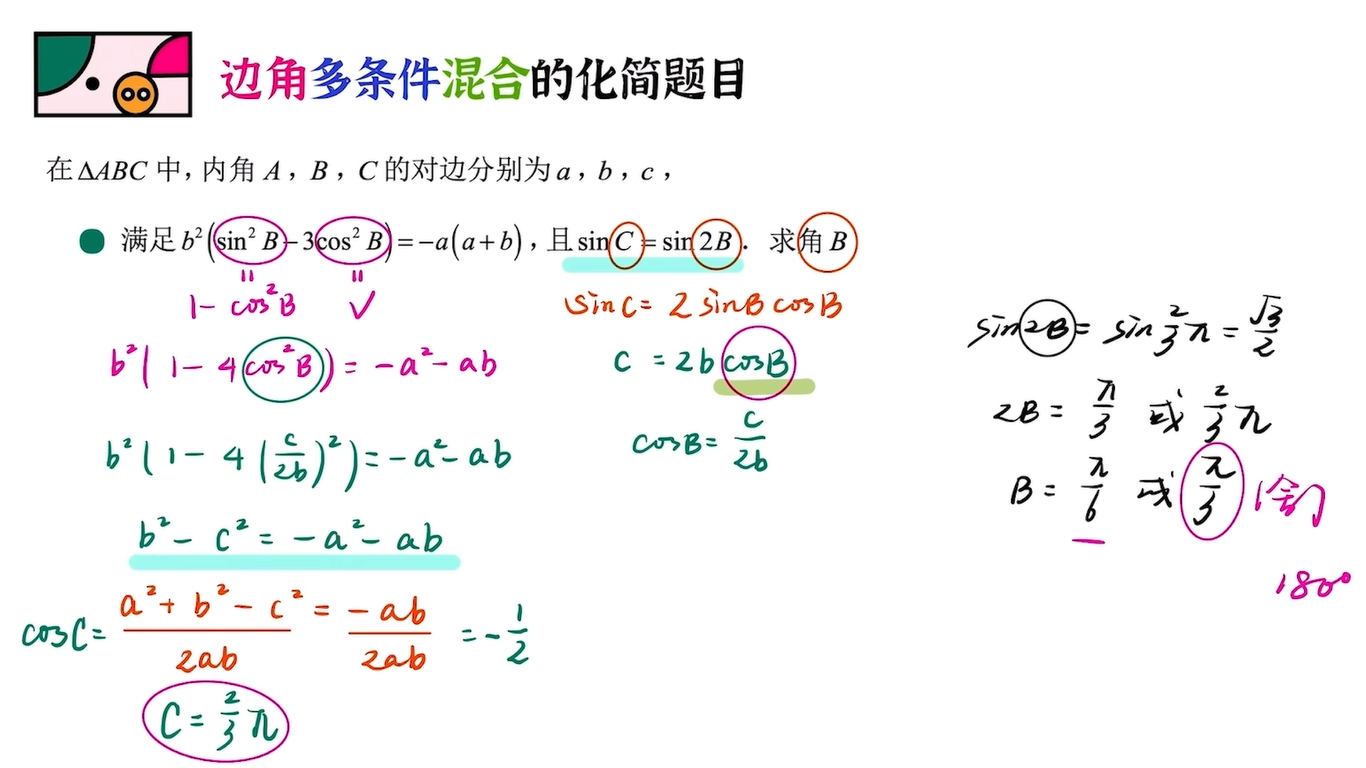 边角多条件混合的化简题目
在ΔABC中,内角A,B,C的对边分别为a,b,c,
满足b²(sin²B-3cos²B)=-a(a+b),且sinC=sin2B. 求角B
1-cos²B ✓
sinC=2sinBcosB
b²(1-4cos²B)=-a²-ab
c=2bcosB
b²(1-4(c/2b)²)=-a²-ab
cosB=c/2b
b²-c²=-a²-ab
cosC=(a²+b²-c²)/2ab=-ab/2ab=-1/2
C=2/3π
sin2B=sin2/3π=√3/2
2B=π/3或2/3π
B=π/6或π/3(舍)
180°